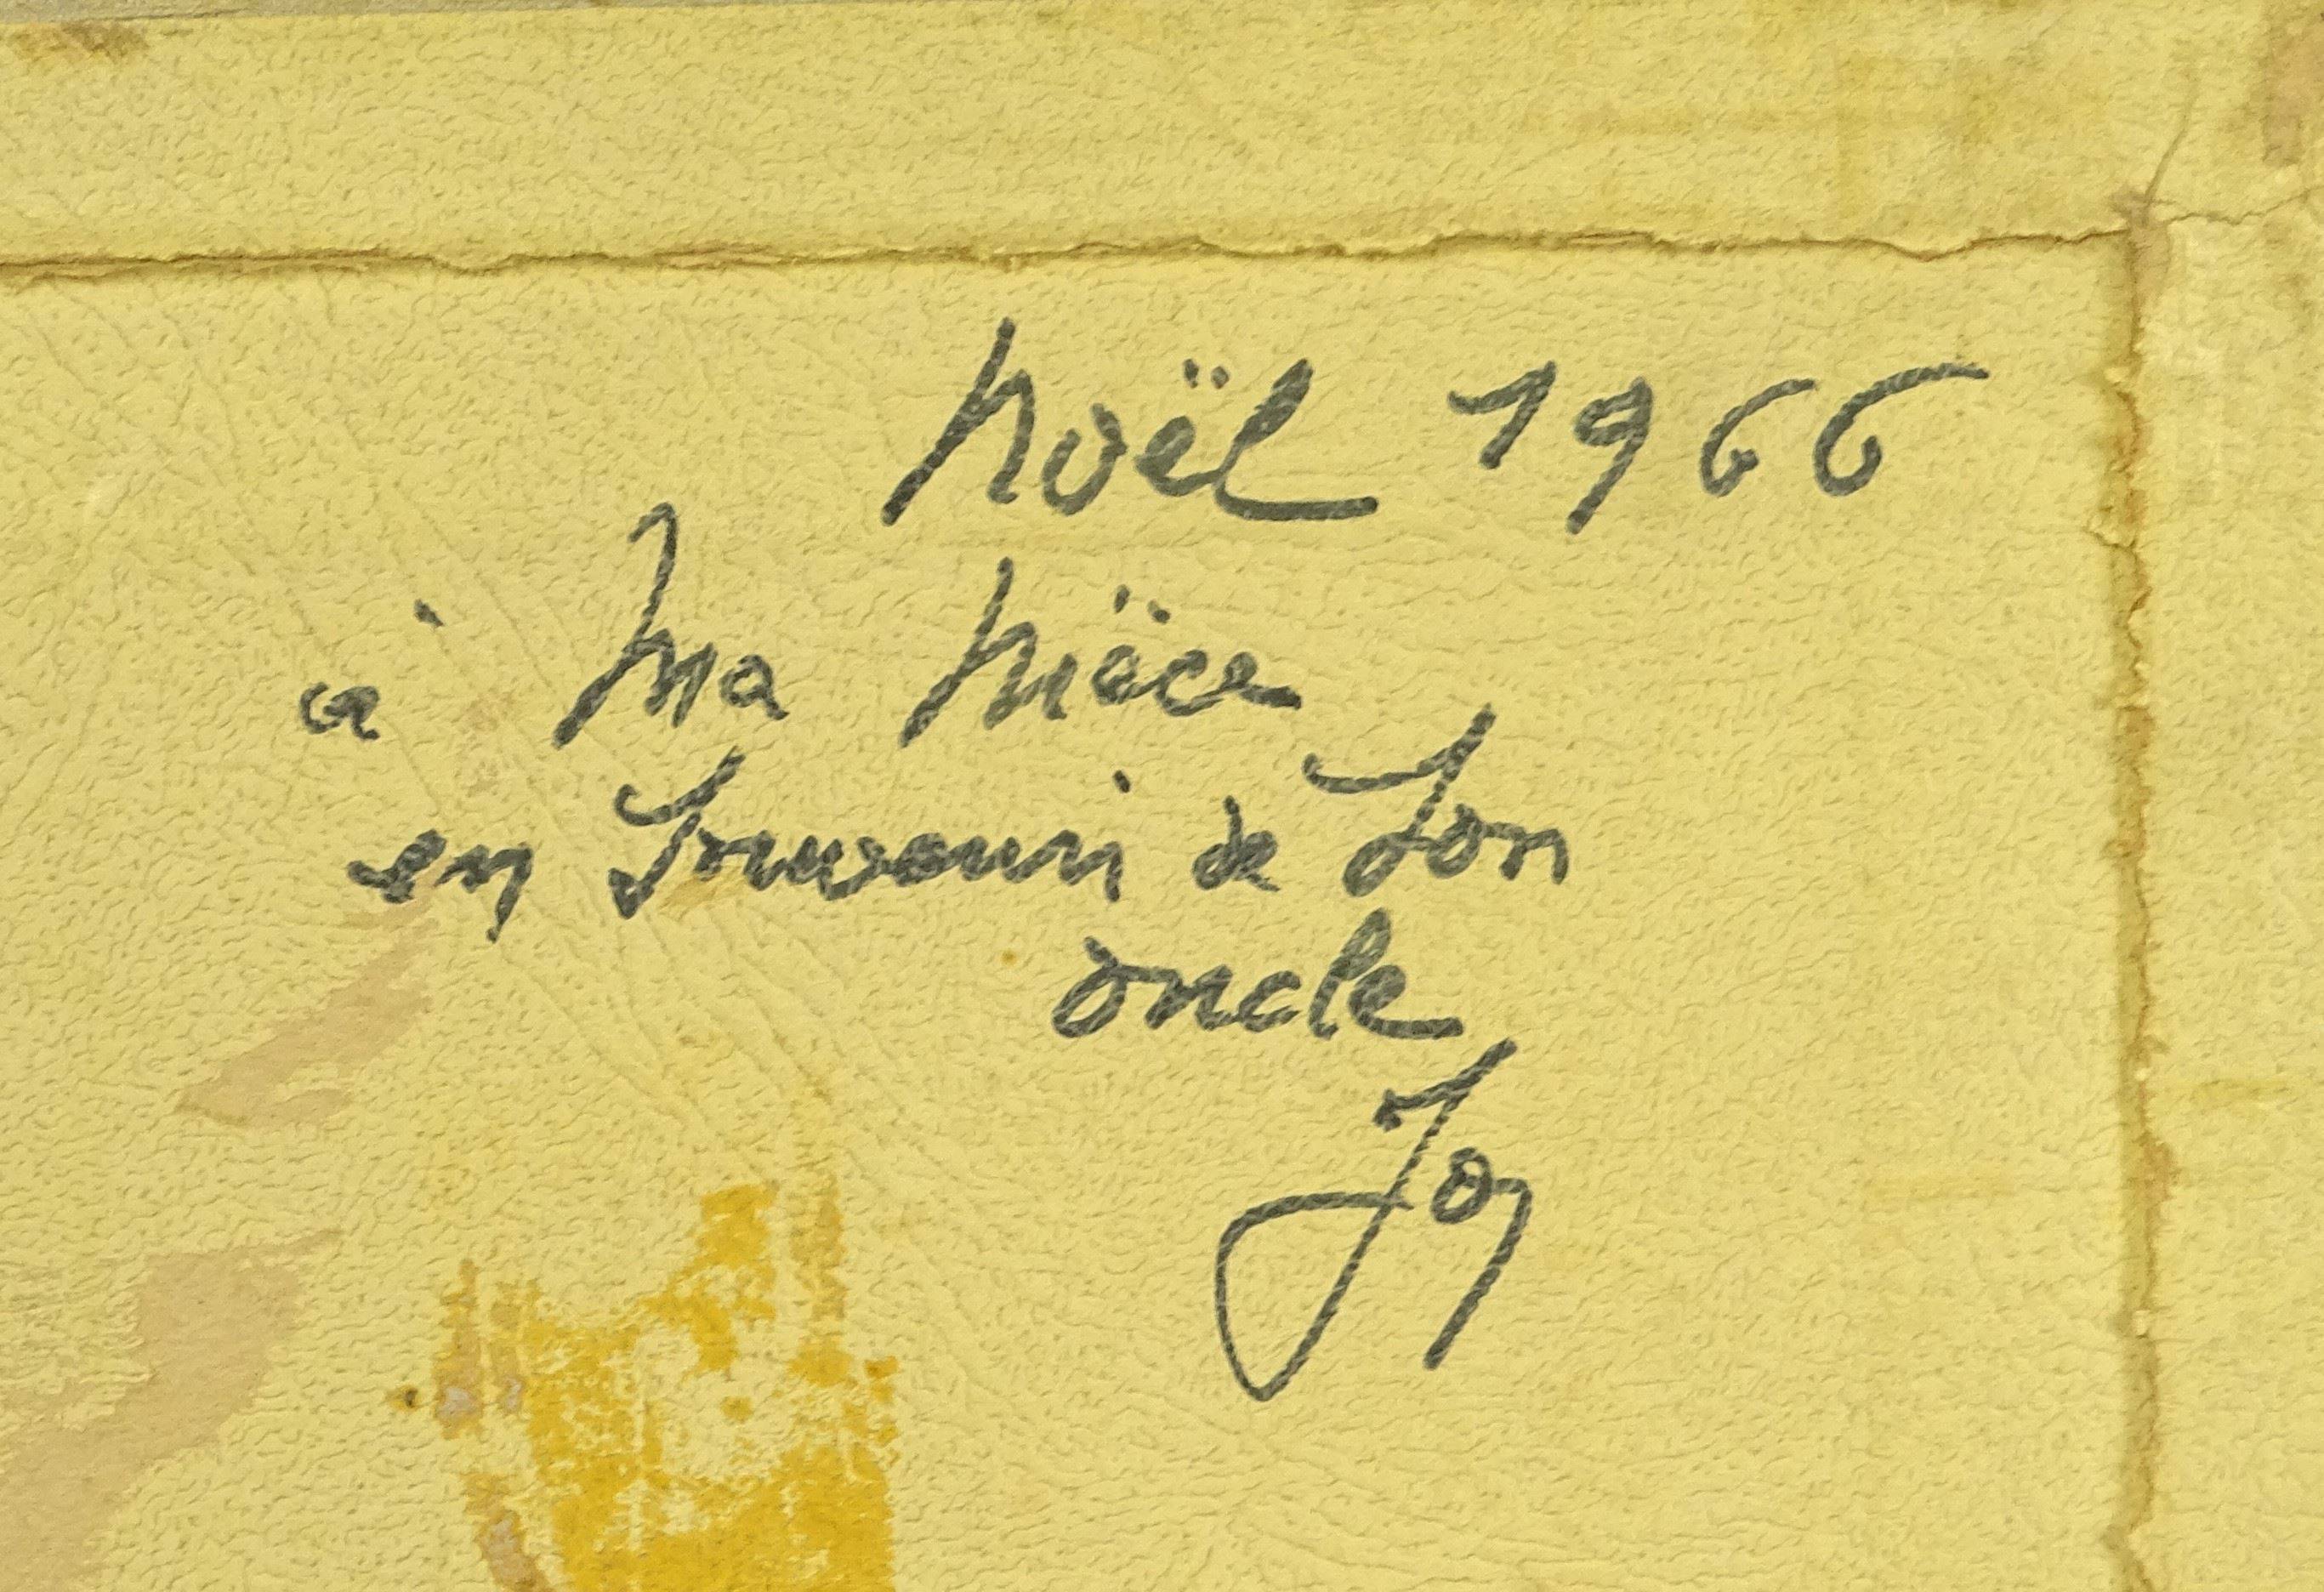 Noël 1966
à Ma Nièce
en Souvenir de Son
oncle
Jos